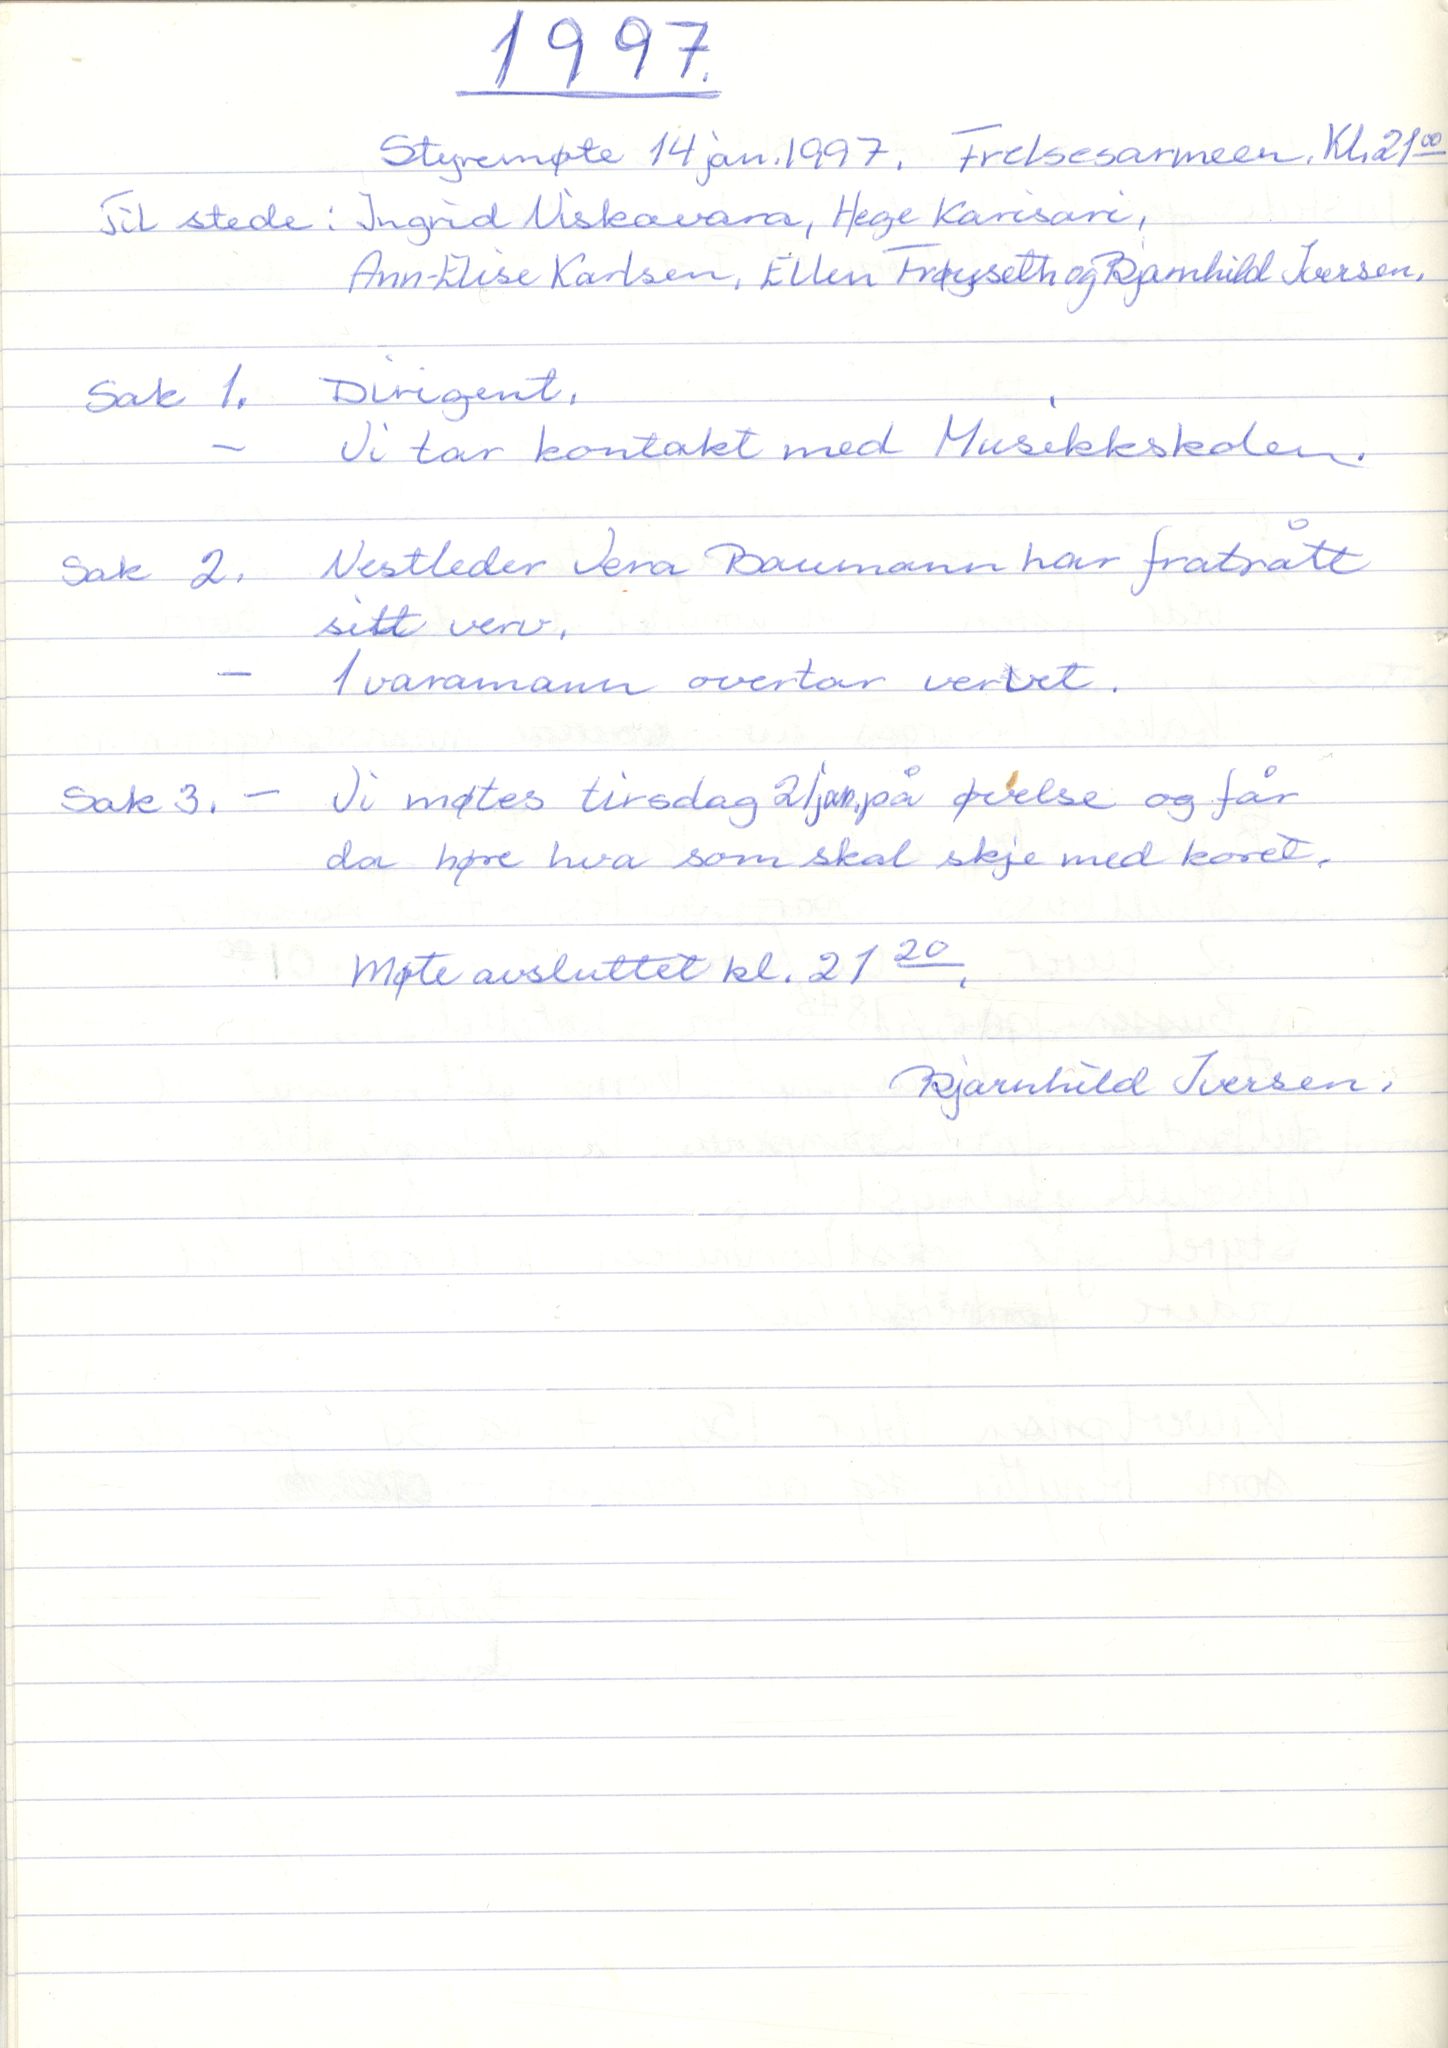 1997.
Styremøte 14 jan. 1997. Frelsesarmeen. Kl. 21 00
Til stede: Ingrid Niskavara, Hege Karisari,
Ann-Elise Karlsen, Ellen Frøyseth og Bjarnhild Iversen.
Sak 1. Dirigent.
- Vi tar kontakt med Musikkskolen.
Sak 2. Nestleder Vera Baumann har fratrått
sitt verv.
- 1 varamann overtar vervet.
Sak 3. - Vi møtes tirsdag 21 jan. på øvelse og får
da høre hva som skal skje med koret.
Møte avsluttet kl. 21 20.
Bjarnhild Iversen.